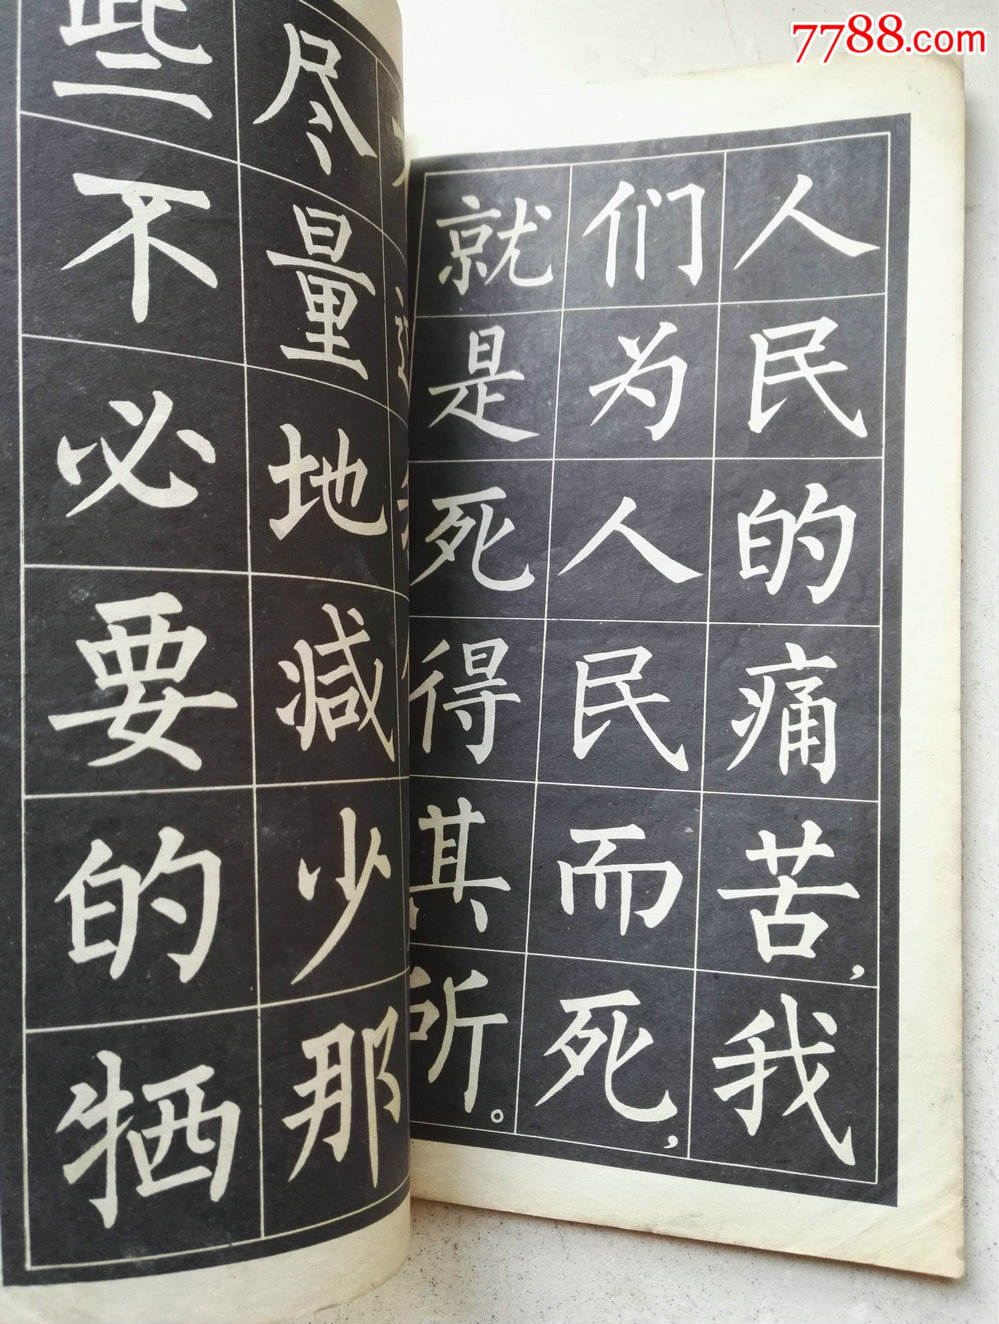 7788.com
人民的痛苦，我
们为人民而死，
就是死得其所。
尽量地减少那
些不必要的牺